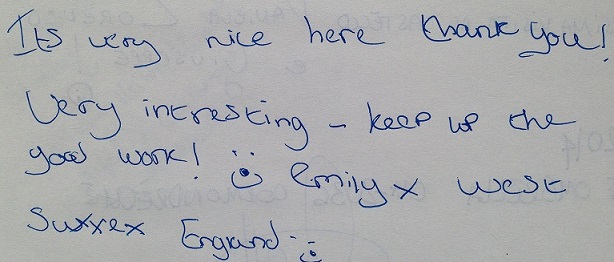 Its very nice here thank you!
Very intresting - keep up the
good work! Emily x West
Sussex England